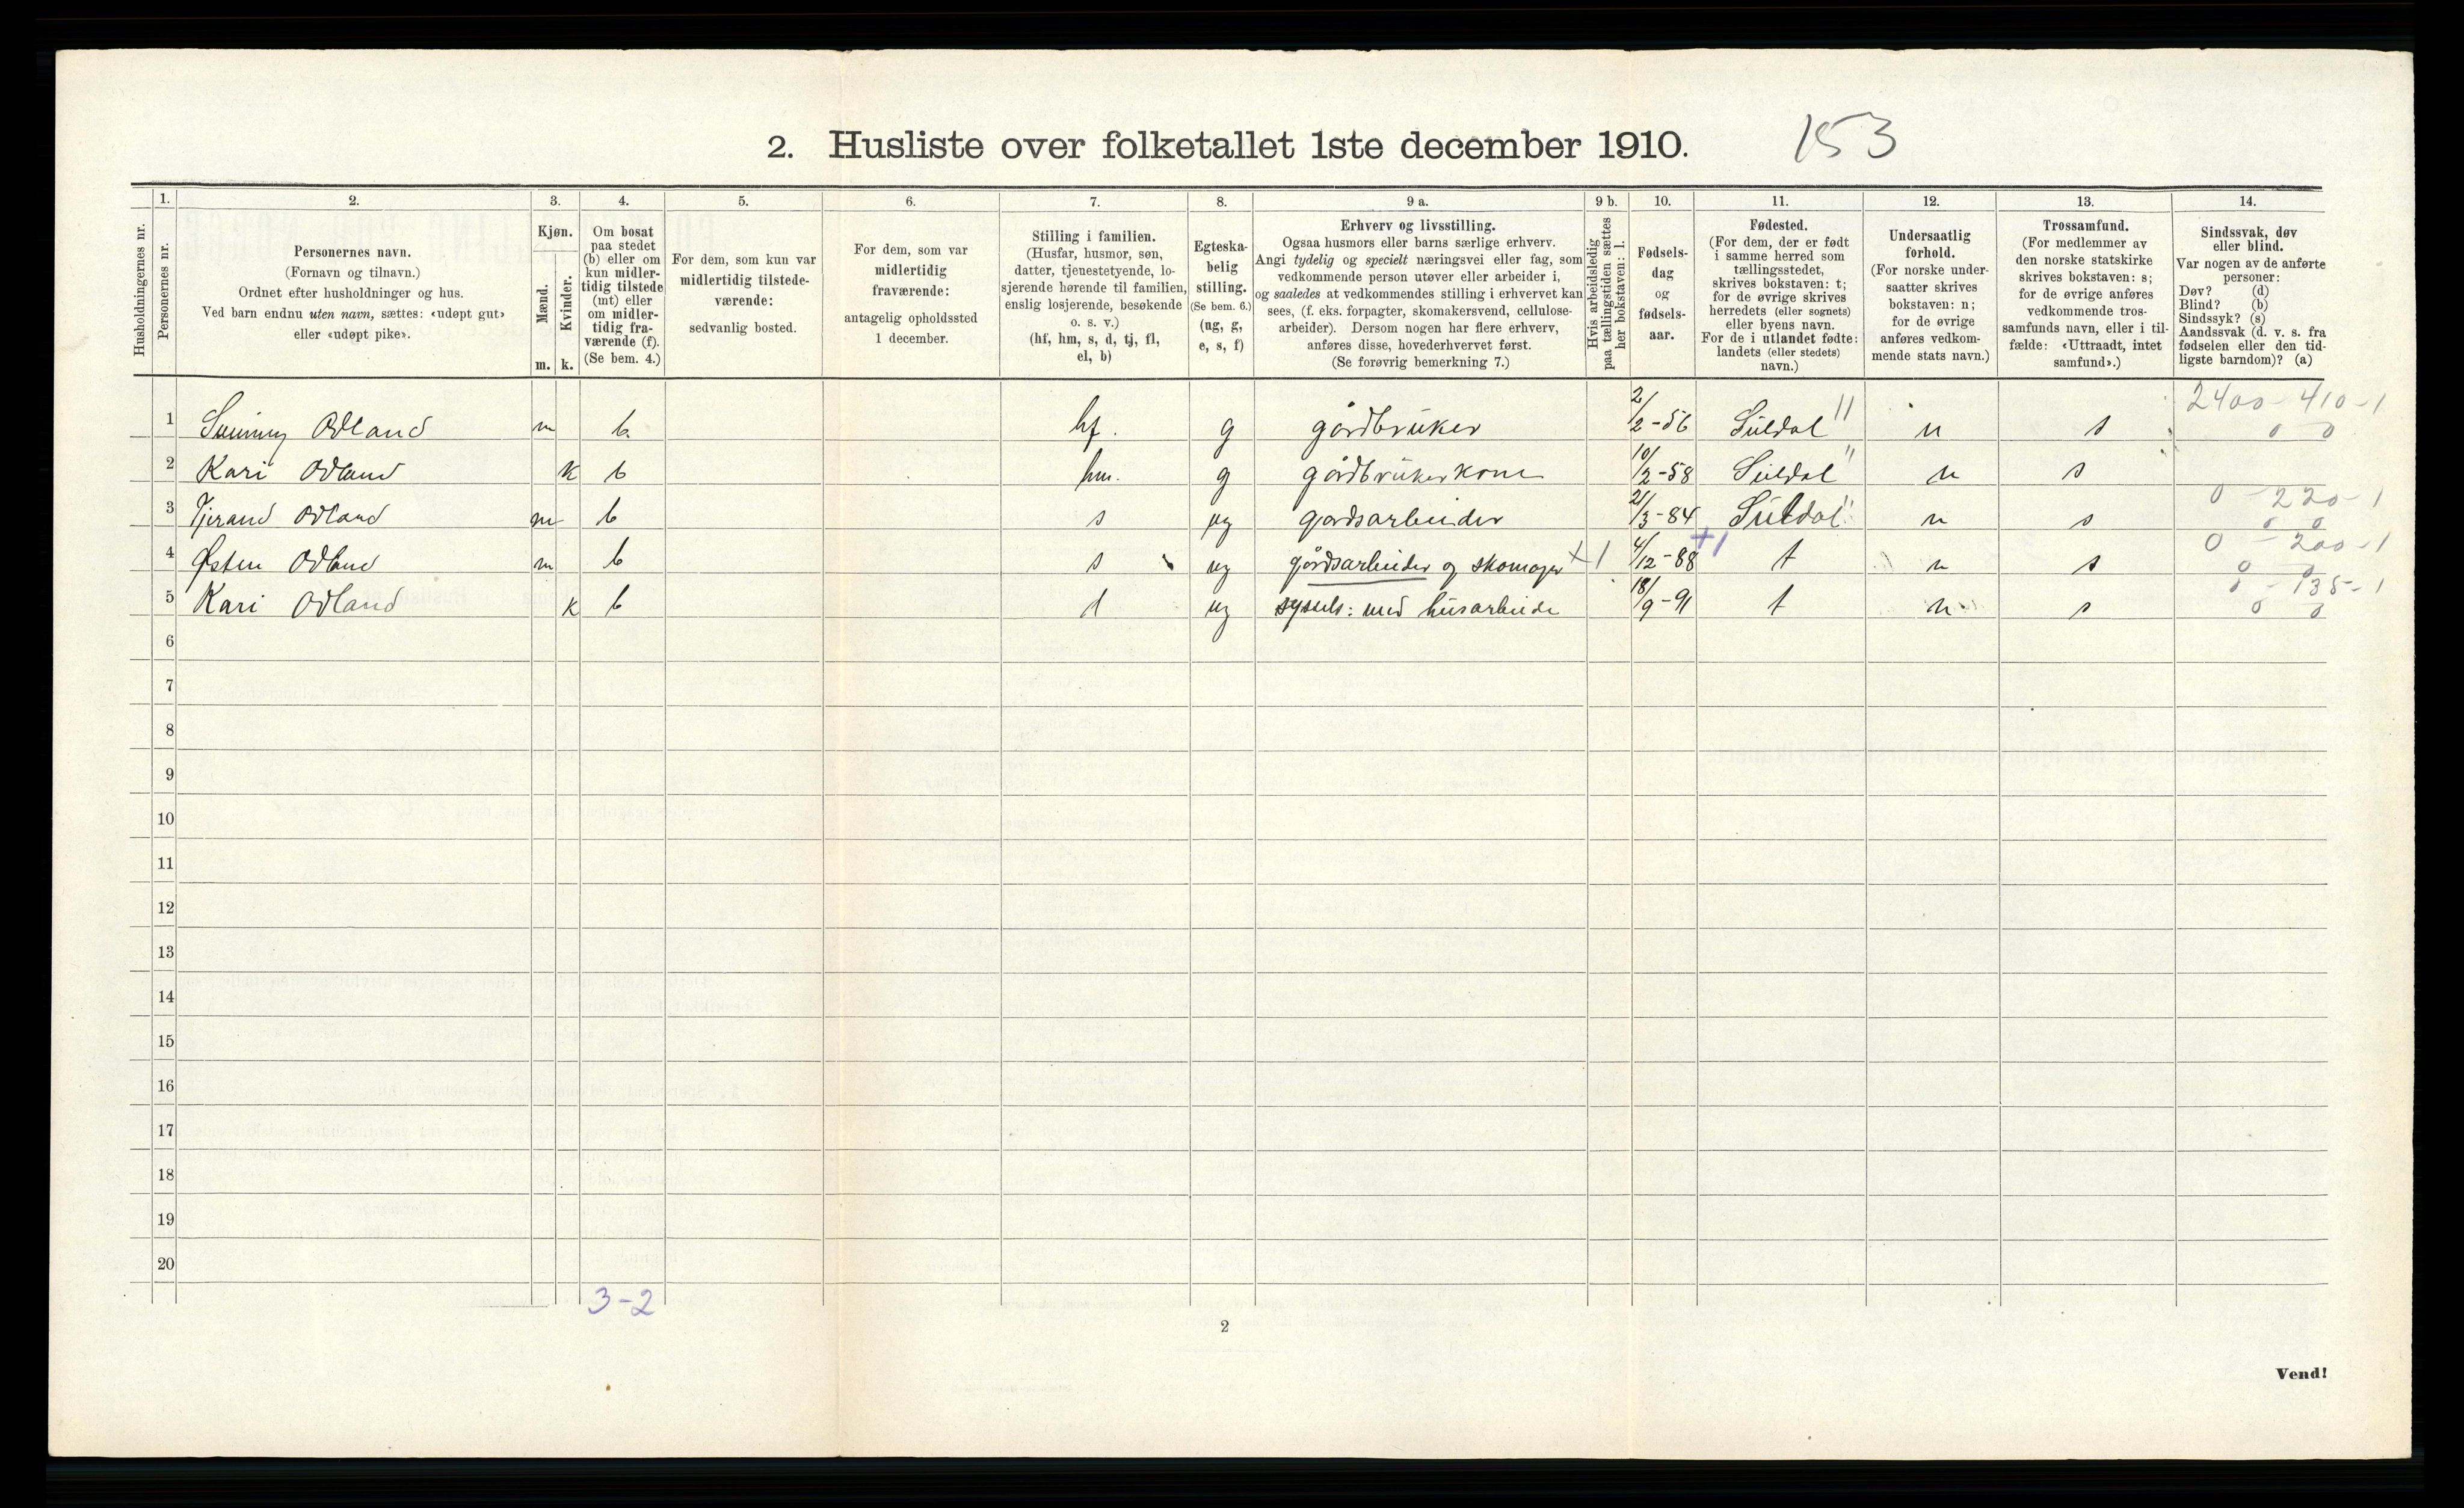 2. Husliste over folketallet 1ste december 1910. 153
Husholdningernes nr.
1. Personernes nr.
2. Personernes navn.
(Fornavn og tilnavn.)
Ordnet efter husholdninger og hus.
Ved barn endnu uten navn, sættes: «udøpt gut»
eller «udøpt pike».
3. Kjøn.
Mænd. m.
Kvinder. k.
4. Om bosat
paa stedet
(b) eller om
kun midler-
tidig tilstede
(mt) eller
om midler-
tidig fra-
værende (f).
(Se bem. 4.)
5. For dem, som kun var
midlertidig tilstede-
værende:
sedvanlig bosted.
6. For dem, som var
midlertidig
fraværende:
antagelig opholdssted
1 december.
7. Stilling i familien.
(Husfar, husmor, søn,
datter, tjenestetyende, lo-
sjerende hørende til familien,
enslig losjerende, besøkende
o. s. v.)
(hf, hm, s, d, tj, fl,
el, b)
8. Egteska-
belig
stilling.
(Se bem. 6.)
(ug, g,
e, s, f)
9 a. Erhverv og livsstilling.
Ogsaa husmors eller barns særlige erhverv.
Angi tydelig og specielt næringsvei eller fag, som
vedkommende person utøver eller arbeider i,
og saaledes at vedkommendes stilling i erhvervet kan
sees, (f. eks. forpagter, skomakersvend, cellulose-
arbeider). Dersom nogen har flere erhverv,
anføres disse, hovederhvervet først.
(Se forøvrig bemerkning 7.)
9 b. Hvis arbeidsledig
paa tællingstiden sættes
her bokstaven: l.
10. Fødsels-
dag
og
fødsels-
aar.
11. Fødested.
(For dem, der er født
i samme herred som
tællingsstedet,
skrives bokstaven: t;
for de øvrige skrives
herredets (eller sognets)
eller byens navn.
For de i utlandet fødte:
landets (eller stedets)
navn.)
12. Undersaatlig
forhold.
(For norske under-
saatter skrives
bokstaven: n;
for de øvrige
anføres vedkom-
mende stats navn.)
13. Trossamfund.
(For medlemmer av
den norske statskirke
skrives bokstaven: s;
for de øvrige anføres
vedkommende tros-
samfunds navn, eller i til-
fælde: «Uttraadt, intet
samfund».)
14. Sindssvak, døv
eller blind.
Var nogen av de anførte
personer:
Døv? (d)
Blind? (b)
Sindssyk? (s)
Aandssvak (d. v. s. fra
fødselen eller den tid-
ligste barndom)? (a)
2400 - 410 - 1
1 Odland m b. hf. g gårdbruker 2/2-56 Suldal 11 n s 0 0
2 Kari Odland k b hm. g gårdbrukerkone 10/2-58 Suldal " n s
0 - 220 - 1
3 Tjerand Odland m b s ug gardsarbeider 2/3-84 Suldal " n s 0 0
0 - 200 - 1
4 Østen Odland m b s ug gårdsarbeider og skomager +1 4/12-88 +1 t n s 0 0
0 - 135 - 1
5 Kari Odland k b d ug syssels: med husarbeide 18/9-91 t n s 0 0
6
7
8
9
10
11
12
13
14
15
16
17
18
19
20
3-2
2
Vend!